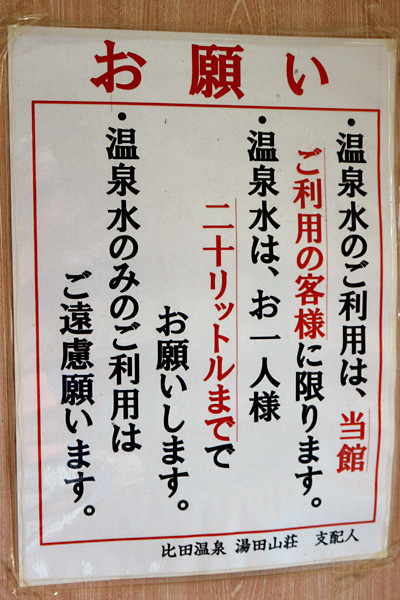 お願い
・温泉水のご利用は、当館
ご利用の客様に限ります。
・温泉水は、お一人様
二十リットルまでで
お願いします。
・温泉水のみのご利用は
ご遠慮願います。
比田温泉 湯田山荘 支配人